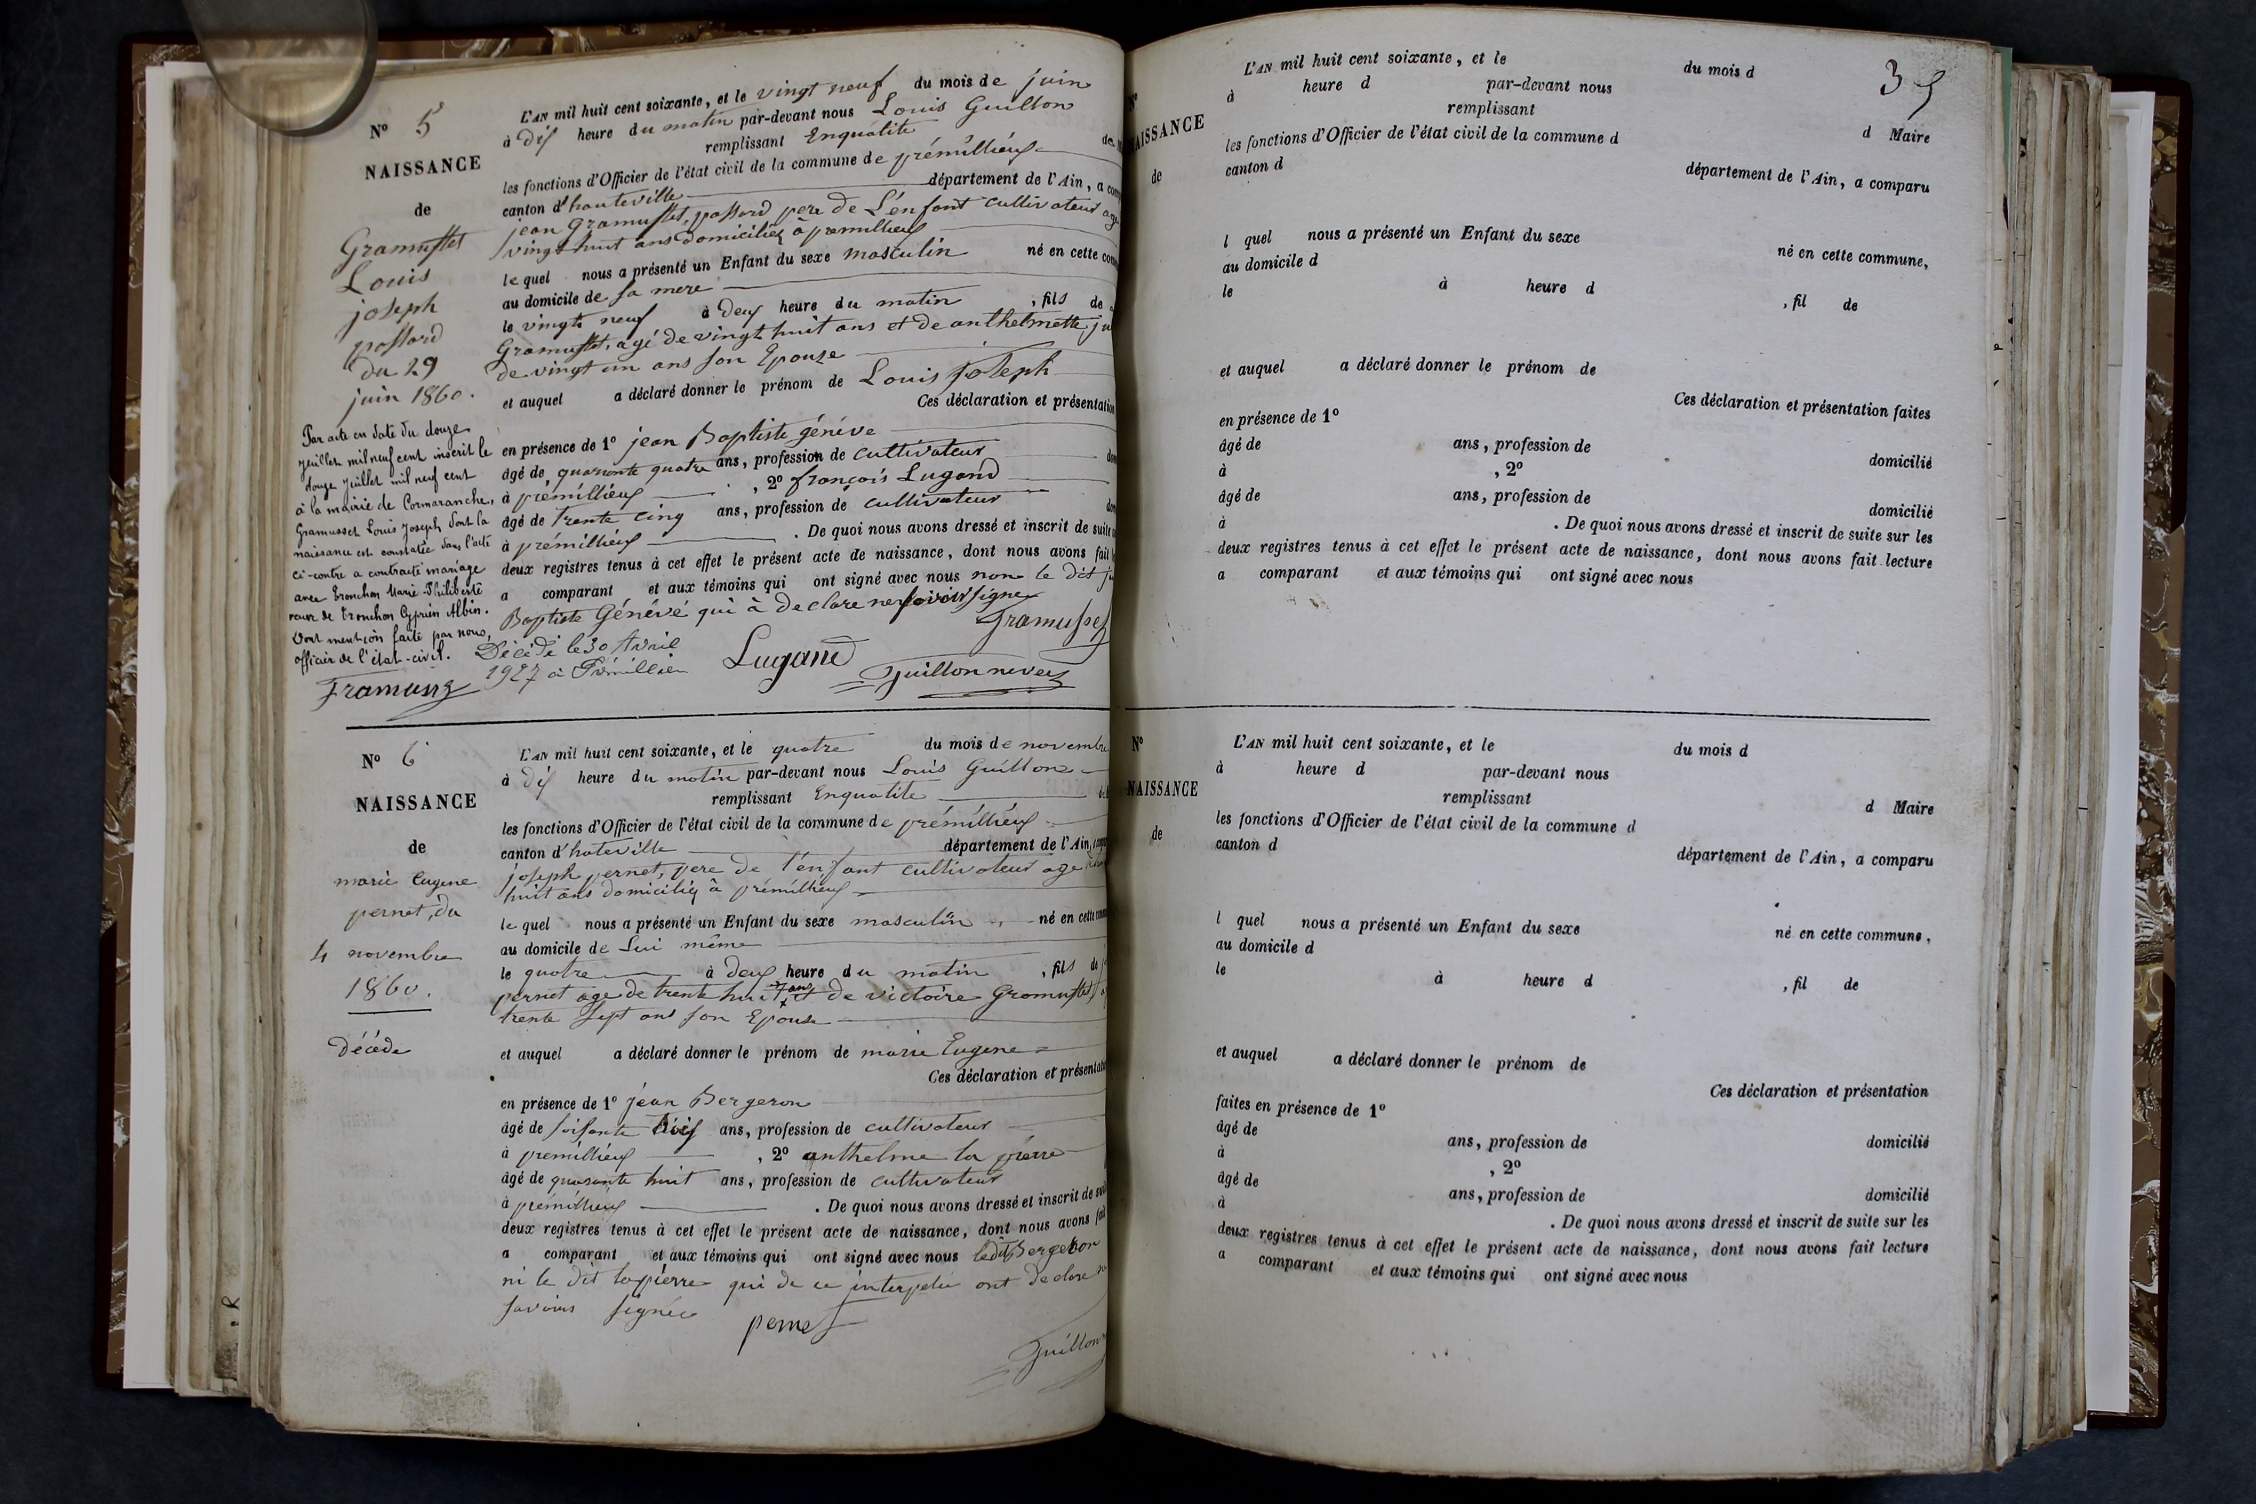 N° 5
NAISSANCE
de
Gramusset
Louis
joseph
possard
du 29
juin 1860.
Par acte en date du douze
juillet mil neuf cent inscrit le
douze juillet mil neuf cent
à la mairie de Cormaranche,
Gramusset Louis Joseph dont la
naissance est constatée dans l'acte
ci-contre a contracté mariage
avec Tronchon Marie-Philiberte
veuve de Tronchon Cyprien Albin.
Dont mention faite par nous,
officier de l'état-civil.
L'AN mil huit cent soixante, et le vingt neuf du mois de juin
à dix heure du matin par-devant nous Louis Guillon
remplissant Enqualite de
les fonctions d'Officier de l'état civil de la commune de prémillieux
canton d'hauteville département de l'Ain, a com
jean Gramusset, possard pere de L'enfant cultivateur age
vingt huit ans domiciliéz à premillieux
le quel nous a présenté un Enfant du sexe masculin né en cette com
au domicile de sa mere
le vingt neuf à deux heure du matin , fils de
Gramusset, agé de vingt huit ans et de anthelmette ju
de vingt un ans son Epouse
et auquel a déclaré donner le prénom de Louis joseph
Ces déclaration et présentation
en présence de 1° jean Baptiste généve
âgé de quarante quatre ans, profession de cultivateur dom
à prémillieux , 2° françois Lugand
âgé de trente cinq ans, profession de cultivateur dom
à prémillieux . De quoi nous avons dressé et inscrit de suite
deux registres tenus à cet effet le présent acte de naissance, dont nous avons fait
a comparant et aux témoins qui ont signé avec nous non le dit
Baptiste Généve qui à declare ne savoir signer
Gramusset
Décédé le 30 Avril
1927 à Prémillieu
Lugand
Guillon neveu
N° 6
NAISSANCE
de
marie Eugene
pernet, du
4 novembre
1860.
Décédé
L'AN mil huit cent soixante, et le quatre du mois de novembre
à dix heure du matin par-devant nous Louis Guillon
remplissant Enqualite
les fonctions d'Officier de l'état civil de la commune de prémillieux
canton d'hateville département de l'Ain,
joseph pernet, pere de l'enfant cultivateur age
huit ans domiciliéz à prémillieux
le quel nous a présenté un Enfant du sexe masculin né en cette
au domicile de Lui même
le quatre à deux heure du matin , fils de
pernet age de trente huit ans et de victoire Gramusset
trente sept ans son Epouse
et auquel a déclaré donner le prénom de marie Eugene
Ces déclaration et présentation
en présence de 1° jean Bergeron
âgé de soisante ans, profession de cultivateur
à premillieux , 2° anthelme la pierre
âgé de quarante huit ans, profession de cultivateur
à prémillieux . De quoi nous avons dressé et inscrit de
deux registres tenus à cet effet le présent acte de naissance, dont nous avons fait
a comparant et aux témoins qui ont signé avec nous ledit Bergeron
ni le dit lapierre qui de ce interpelé ont declare
savoir signée
pernet
Guillon
35
N°
NAISSANCE
de
L'AN mil huit cent soixante, et le du mois d
à heure d par-devant nous
remplissant d Maire
les fonctions d'Officier de l'état civil de la commune d
canton d département de l'Ain, a comparu
l quel nous a présenté un Enfant du sexe né en cette commune,
au domicile d
le à heure d , fil de
et auquel a déclaré donner le prénom de
Ces déclaration et présentation faites
en présence de 1°
âgé de ans, profession de domicilié
à , 2°
âgé de ans, profession de domicilié
à . De quoi nous avons dressé et inscrit de suite sur les
deux registres tenus à cet effet le présent acte de naissance, dont nous avons fait lecture
a comparant et aux témoins qui ont signé avec nous
N°
NAISSANCE
de
L'AN mil huit cent soixante, et le du mois d
à heure d par-devant nous
remplissant d Maire
les fonctions d'Officier de l'état civil de la commune d
canton d département de l'Ain, a comparu
l quel nous a présenté un Enfant du sexe né en cette commune,
au domicile d
le à heure d , fil de
et auquel a déclaré donner le prénom de
Ces déclaration et présentation
faites en présence de 1°
âgé de ans, profession de domicilié
à , 2°
âgé de ans, profession de domicilié
à . De quoi nous avons dressé et inscrit de suite sur les
deux registres tenus à cet effet le présent acte de naissance, dont nous avons fait lecture
a comparant et aux témoins qui ont signé avec nous